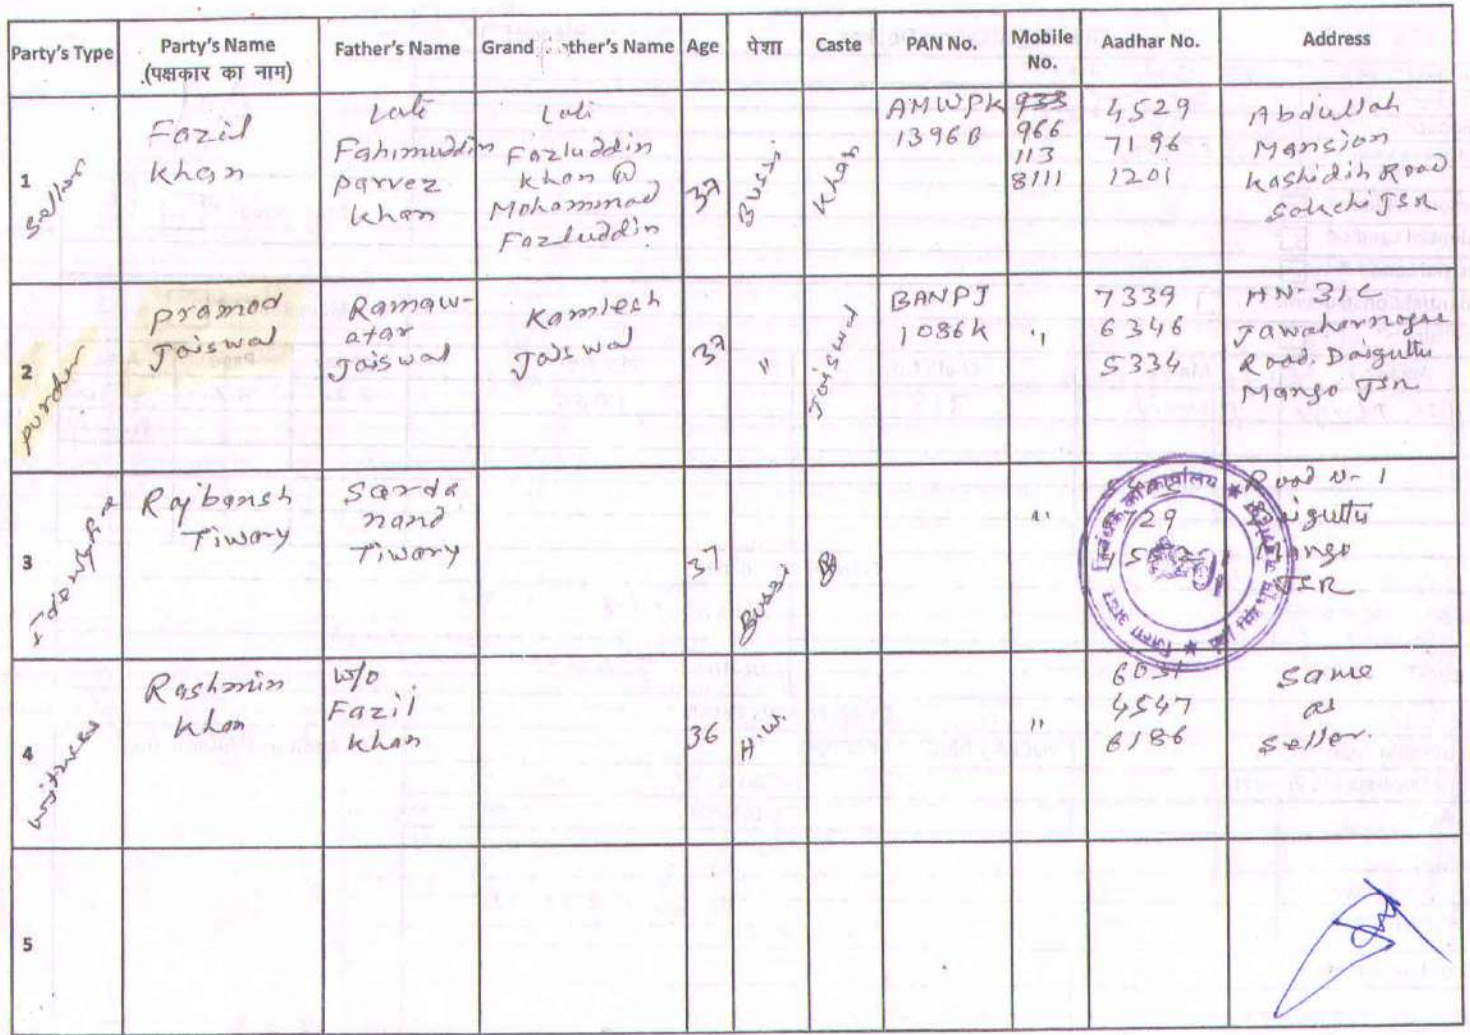 Party's Type Party's Name Father's Name Grand ther's Name Age पेशा Caste PAN No. Mobile Aadhar No. Address
(पक्षकार का नाम) No.
1
Seller
Fazil
Khan
Late
Fahimuddin
parvez
Khan
Late
Fazluddin
Khan @
Mohammad
Fazluddin
37
Buss.
Khan
AMWPK
1396B
966
113
8111
4529
7196
1201
Abdullah
Mansion
Kashidih Road
Sakchi JSR
2
purcher
pramod
Jaiswal
Ramaw-
atar
Jaiswal
Kamlesh
Jaiswal
37
"
Jaiswal
BANPJ
1086K
"
7339
6346
5334
HN-31C
Jawaharnagar
Road, Daiguttu
Mango JSR
3
Rajbansh
Tiwary
Sarda
nand
Tiwary
37
Buss.
"
729
Road N-1
Daiguttu
Mango
JSR
निबंधक का कार्यालय
जिला अवर
4
witness
Rashmin
Khan
W/O
Fazil
Khan
36
H.W.
"
4547
6186
Same
as
Seller.
5